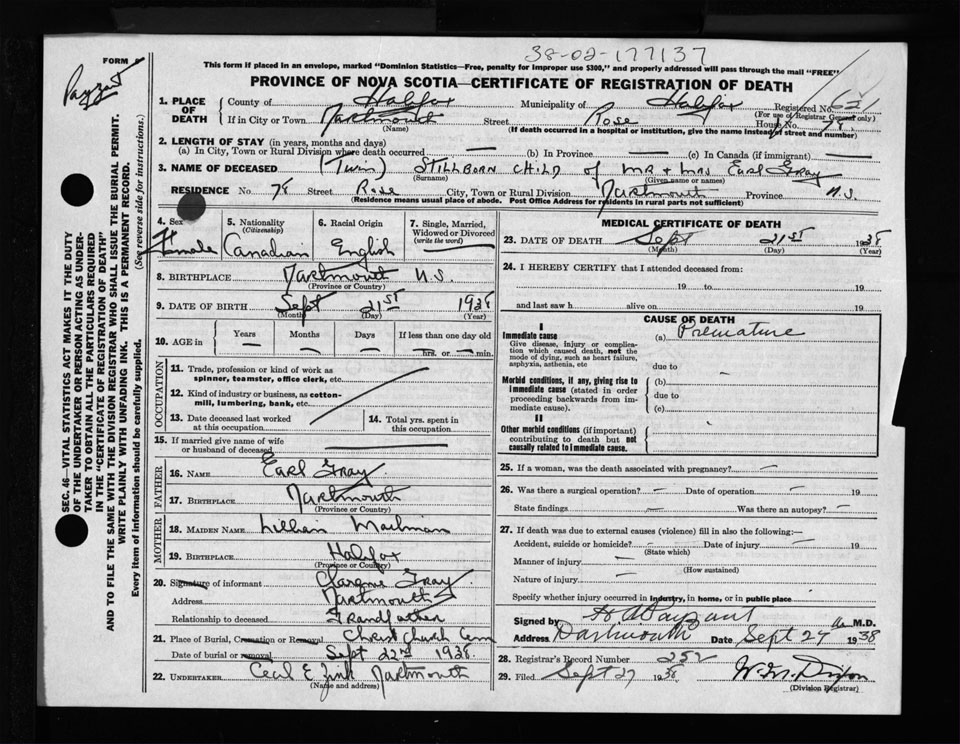 38-02-177137
FORM
Payzant
This form if placed in an envelope, marked "Dominion Statistics—Free, penalty for improper use $300," and properly addressed will pass through the mail "FREE"
PROVINCE OF NOVA SCOTIA—CERTIFICATE OF REGISTRATION OF DEATH
SEC. 46—VITAL STATISTICS ACT MAKES IT THE DUTY
OF THE UNDERTAKER OR PERSON ACTING AS UNDER-
TAKER TO OBTAIN ALL THE PARTICULARS REQUIRED
IN THE "CERTIFICATE OF REGISTRATION OF DEATH"
AND TO FILE THE SAME WITH THE DIVISION REGISTRAR WHO SHALL ISSUE THE BURIAL PERMIT.
WRITE PLAINLY WITH UNFADING INK. THIS IS A PERMANENT RECORD.
Every item of information should be carefully supplied. (See reverse side for instructions.)
1. PLACE OF DEATH
County of Halifax Municipality of Halifax Registered No. 621
(For use of Registrar General only)
If in City or Town Dartmouth Street Rose House No. 78
(Name) (If death occurred in a hospital or institution, give the name instead of street and number)
2. LENGTH OF STAY (in years, months and days)
(a) In City, Town or Rural Division where death occurred — (b) In Province — (c) In Canada (if immigrant) —
3. NAME OF DECEASED (Twin) STILLBORN CHILD of MR + MRS Earl Gray
(Surname) (Given name or names)
RESIDENCE No. 78 Street Rose City, Town or Rural Division Dartmouth Province N.S.
(Residence means usual place of abode. Post Office Address for residents in rural parts not sufficient)
4. Sex Female
5. Nationality (Citizenship) Canadian
6. Racial Origin English
7. Single, Married, Widowed or Divorced (write the word) —
8. BIRTHPLACE Dartmouth N.S.
(Province or Country)
9. DATE OF BIRTH Sept 21st 1938
(Month) (Day) (Year)
10. AGE in Years — Months — Days — If less than one day old — hrs. or — min.
OCCUPATION
11. Trade, profession or kind of work as
spinner, teamster, office clerk, etc.
12. Kind of industry or business, as cotton-
mill, lumbering, bank, etc.
13. Date deceased last worked at this occupation
14. Total yrs. spent in this occupation
15. If married give name of wife
or husband of deceased
FATHER
16. NAME Earl Gray
17. BIRTHPLACE Dartmouth
(Province or Country)
MOTHER
18. MAIDEN NAME Lillian Mailman
19. BIRTHPLACE Halifax
(Province or Country)
20. Signature of informant Clarence Gray
Address Dartmouth
Relationship to deceased Grandfather
21. Place of Burial, Cremation or Removal Christ Church Cem
Date of burial or removal Sept 22nd 1938
22. UNDERTAKER Cecil E Zink Dartmouth
(Name and address)
MEDICAL CERTIFICATE OF DEATH
23. DATE OF DEATH Sept 21st 1938
(Month) (Day) (Year)
24. I HEREBY CERTIFY that I attended deceased from:
19 to 19
and last saw h alive on 19
CAUSE OF DEATH
I
Immediate cause (a) Premature
Give disease, injury or complica-
tion which caused death, not the
mode of dying, such as heart failure,
asphyxia, asthenia, etc
due to —
Morbid conditions, if any, giving rise to (b)
Immediate cause (stated in order due to
proceeding backwards from im- (c)
mediate cause).
II
Other morbid conditions (if important)
contributing to death but not
causally related to immediate cause.
25. If a woman, was the death associated with pregnancy? —
26. Was there a surgical operation? — Date of operation — 19
State findings — Was there an autopsy? —
27. If death was due to external causes (violence) fill in also the following:—
Accident, suicide or homicide? — Date of injury — 19
(State which)
Manner of injury —
(How sustained)
Nature of injury —
Specify whether injury occurred in industry, in home, or in public place
Signed by H A Payzant M.D.
Address Dartmouth Date Sept 27 1938
28. Registrar's Record Number 252
29. Filed Sept 27 1938 W. M. Dixon
(Division Registrar)